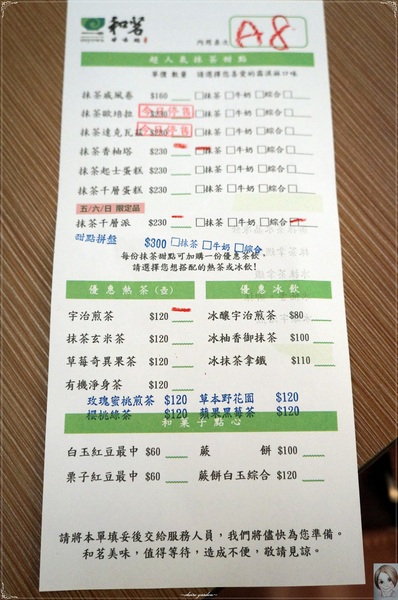 和茗
甘味処
內用桌次 A8
超人氣抹茶甜點
單價 數量 請選擇您喜愛的霜淇淋口味
抹茶戚風卷 $160 □抹茶 □牛奶 □綜合
抹茶歐培拉 $230 今日停售 □抹茶 □牛奶 □綜合
抹茶達克瓦茲 $230 今日停售 □抹茶 □牛奶 □綜合
抹茶香柚塔 $230 □抹茶 □牛奶 □綜合
抹茶起士蛋糕 $230 □抹茶 □牛奶 □綜合
抹茶千層蛋糕 $230 □抹茶 □牛奶 □綜合
五/六/日 限定品
抹茶千層派 $230 □抹茶 □牛奶 □綜合
甜點拼盤 $300 □抹茶 □牛奶 □綜合
每份抹茶甜點可加購一份優惠茶飲、
請選擇您想搭配的熱茶或冰飲!
優惠熱茶(壺) 優惠冰飲
宇治煎茶 $120 冰釀宇治煎茶 $80
抹茶玄米茶 $120 冰柚香御抹茶 $100
草莓奇異果茶 $120 冰抹茶拿鐵 $110
有機淨身茶 $120
玫瑰蜜桃煎茶 $120 草本野花園 $120
櫻桃綠茶 $120 蘋果黑莓茶 $120
和菓子點心
白玉紅豆最中 $60 蕨餅 $100
栗子紅豆最中 $60 蕨餅白玉綜合 $120
請將本單填妥後交給服務人員，我們將儘快為您準備。
和茗美味，值得等待，造成不便，敬請見諒。